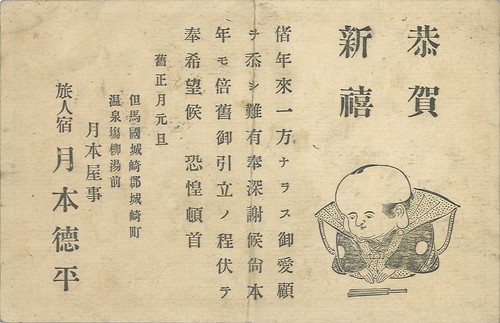 恭賀
新禧
偖年來一方ナラス御愛顧
ヲ忝シ難有奉深謝候尙本
年モ倍舊御引立ノ程伏テ
奉希望候 恐惶頓首
舊正月元旦
但馬國城崎郡城崎町
温泉塲柳湯前
月本屋事
旅人宿 月本德平